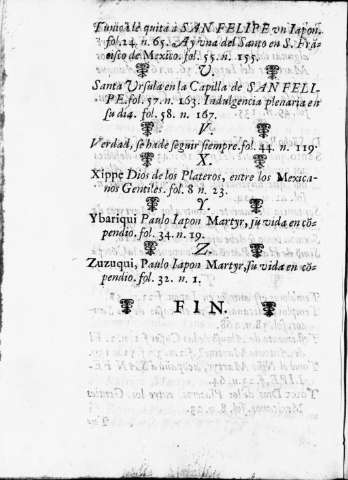 Tunica le quita à SAN FELIPE vn Iapon.
fol. 24. n. 65. Ay vna del Santo en S. Frã-
cisco de Mexico. fol. 55. n. 155.
U.
Santa Vrsula en la Capilla de SAN FELI-
PE. fol. 57. n. 163. Indulgencia plenaria en
su dia. fol. 58. n. 167.
V.
Verdad, se ha de seguir siempre. fol. 44. n. 119.
X.
Xippe Dios de los Plateros, entre los Mexica-
nos Gentiles. fol. 8 n. 23.
Y.
Ybariqui Paulo Iapon Martyr, su vida en cõ-
pendio. fol. 34. n. 19.
Z.
Zuzuqui, Paulo Iapon Martyr, su vida en cõ-
pendio. fol. 32. n. 1.
FIN.